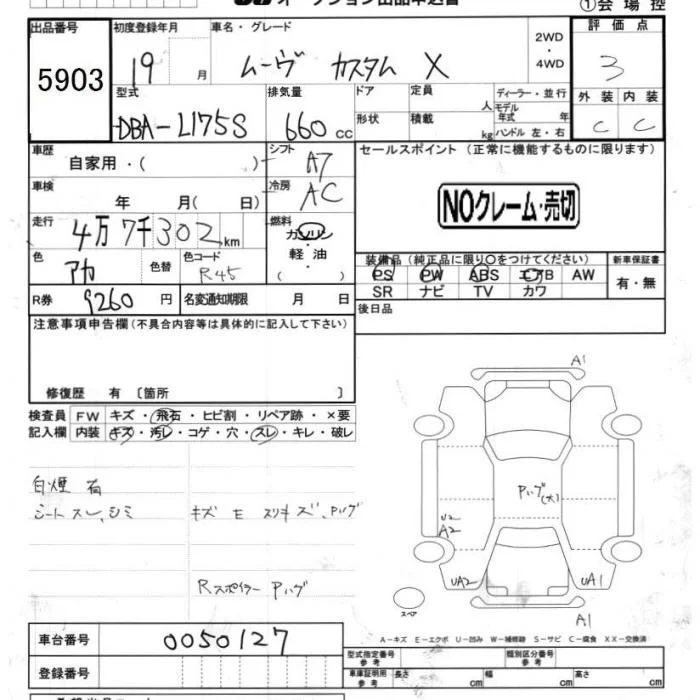 オークション出品申込書
①会場控
出品番号 初度登録年月 車名・グレード 2WD・4WD 評価点
5903 19 月 ムーヴ カスタム X 3
型式 排気量 ドア 定員 人 ディーラー・並行 外装 内装
モデル年式 年
DBA-L175S 660 cc 形状 積載 kg ハンドル 左・右 C C
車歴 シフト セールスポイント (正常に機能するものに限ります)
自家用・( ) A7
車検 冷房 NOクレーム・売切
年 月( 日) AC
走行 燃料
4万7千302km ガソリン
色 色替 色コード 軽油 装備品(純正品に限り○をつけてください) 新車保証書
アカ R45 ( ) PS PW ABS エアB AW 有・無
R券 9260円 名変通知期限 月 日 SR ナビ TV カワ
注意事項申告欄(不具合内容等は具体的に記入して下さい) 後日品
修復歴 有 〔箇所 〕
検査員 FW キズ・飛石・ヒビ割・リペア跡・×要
記入欄 内装 キズ・汚レ・コゲ・穴・スレ・キレ・破レ
A1
白煙 有
シートスレ、シミ キズ E スリキズ、Pハゲ
Pハゲ(大)
U2
A2
Rスポイラー Pハゲ
UA2 UA1
スペア A1
車台番号 0050127
A-キズ E-エクボ U-凹み W-補修跡 S-サビ C-腐食 XX-交換済
型式指定番号 参考 類別区分番号 参考
登録番号 車庫証明用 参考 長さ cm 幅 cm 高さ cm